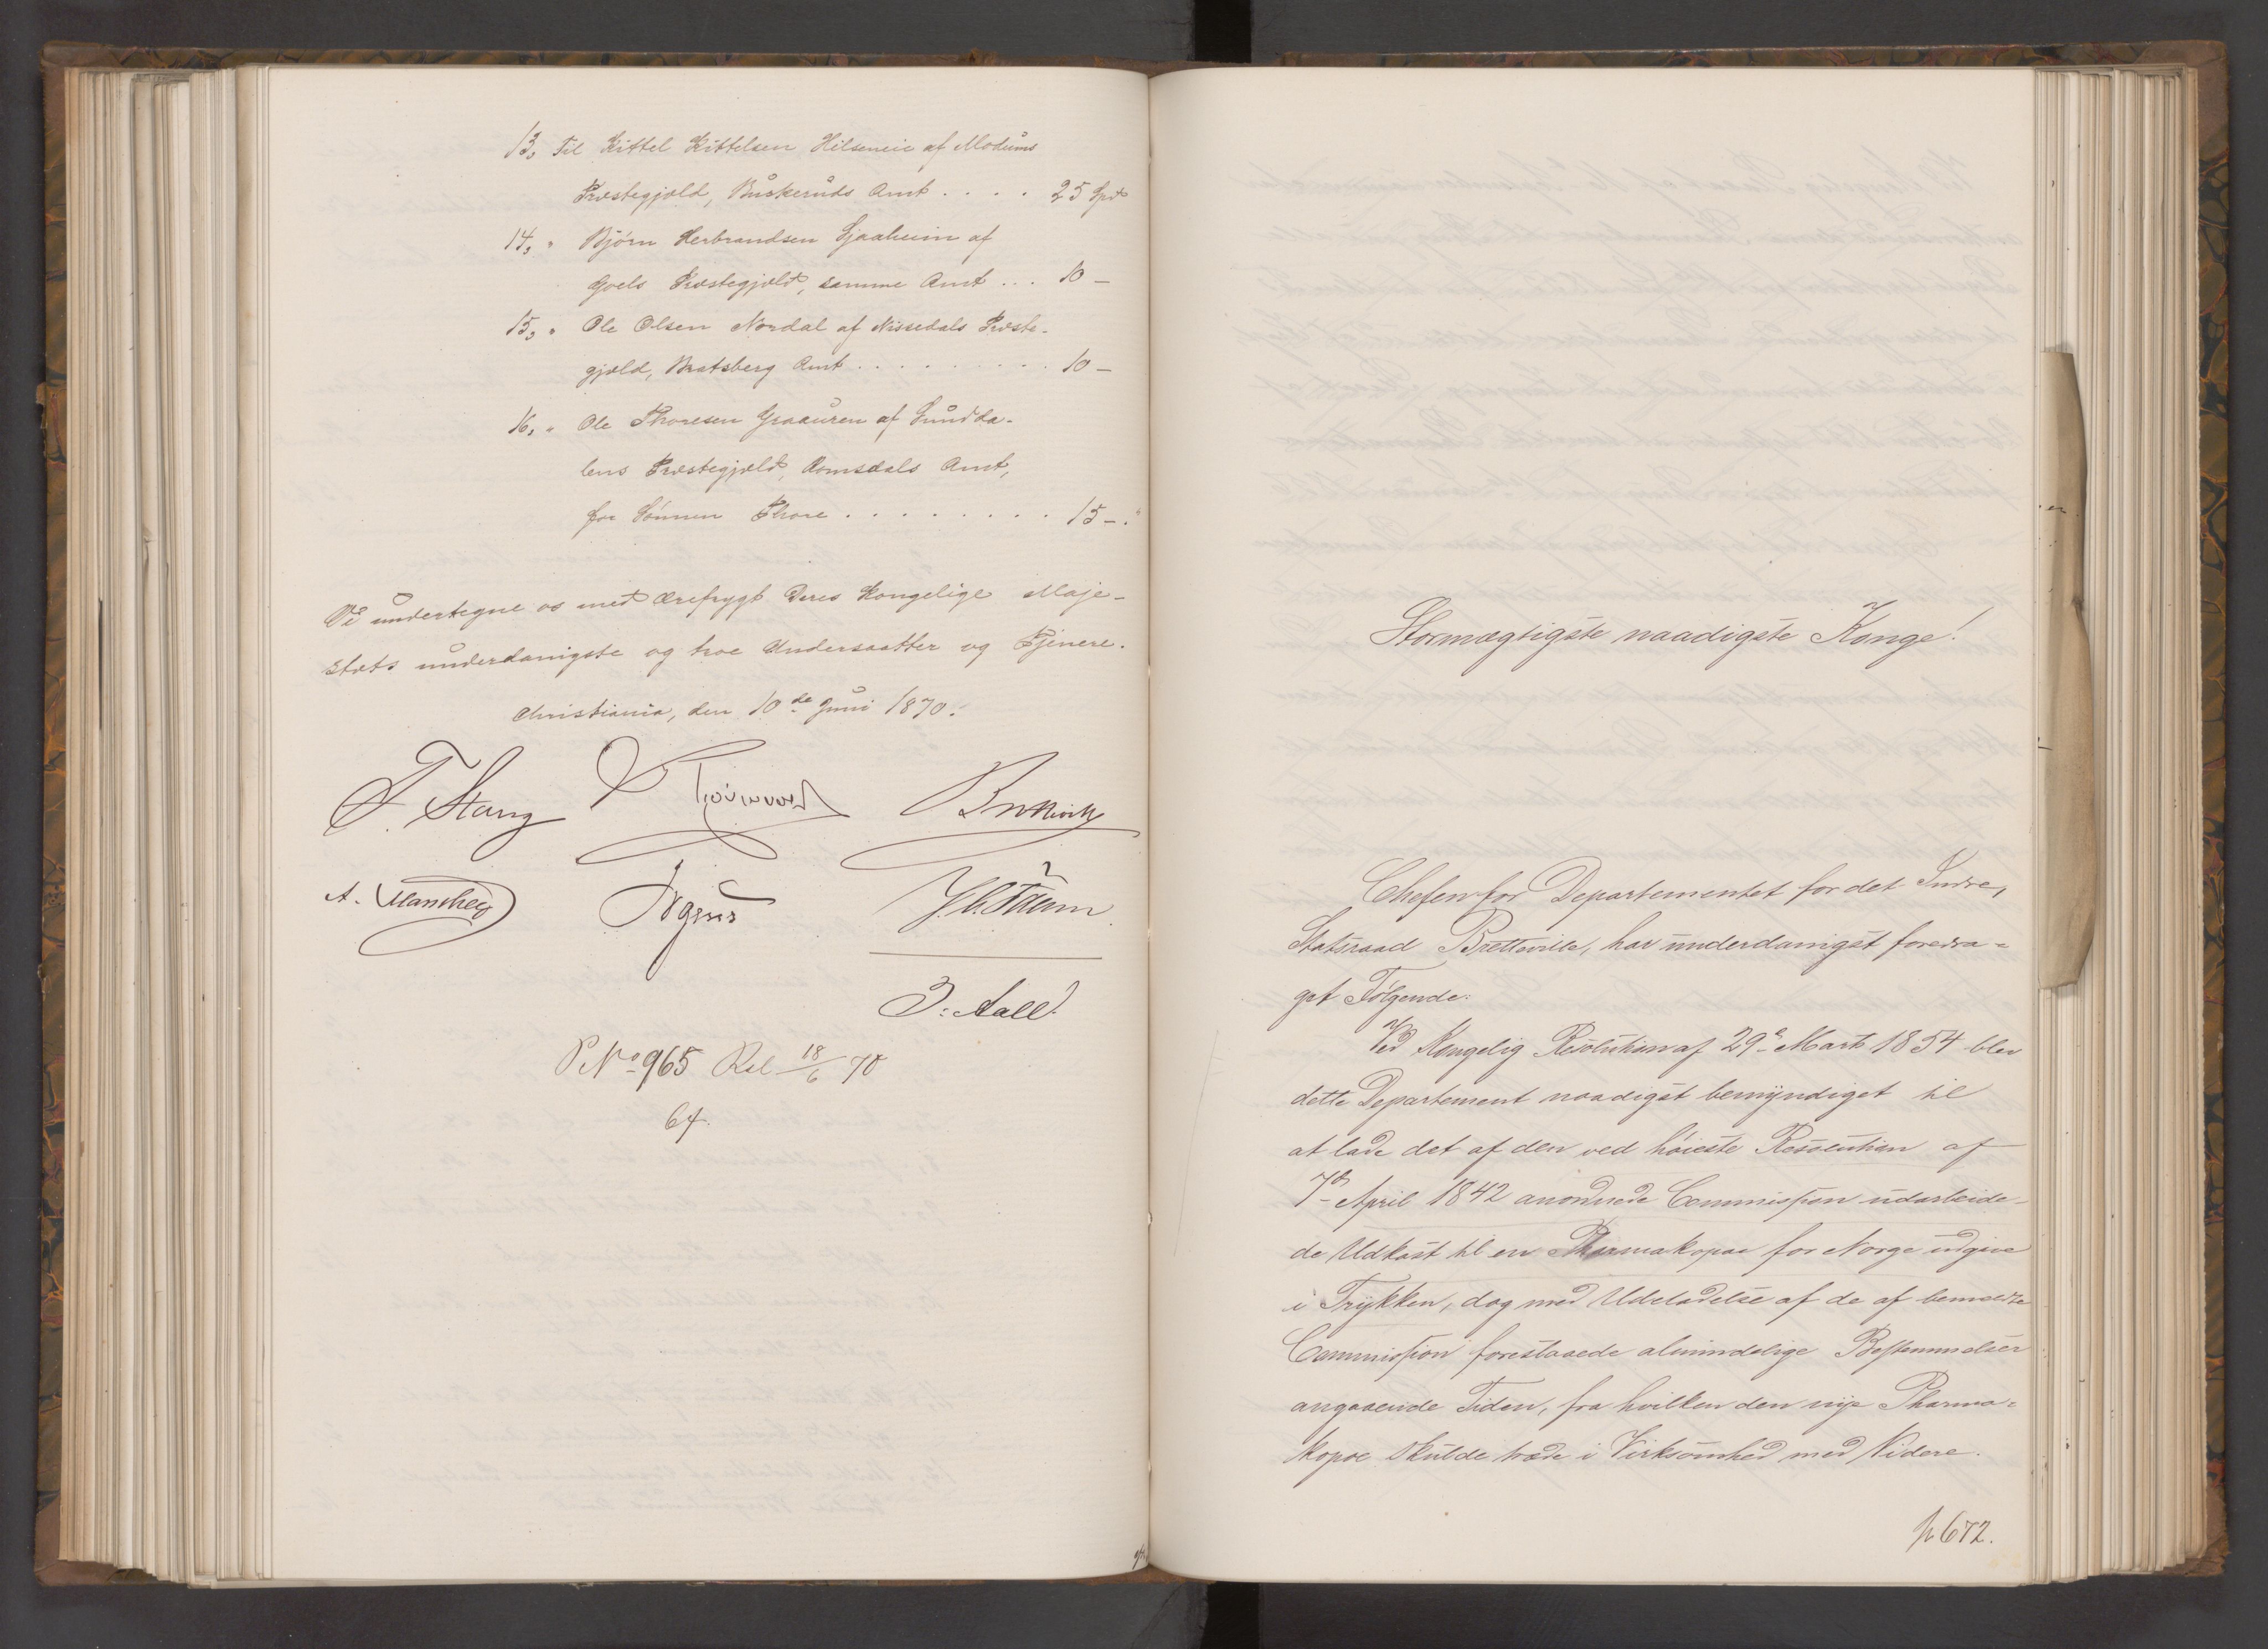 13, Til Kittel Kittelsen Hilseneie af Modums
Præstegjæld, Buskeruds Amt . . . . 25 Spd
14, " Bjørn Herbrandsen Gjaaheim af
Goels Præstegjæld, samme Amt . . . 10 –
15, " Ole Olsen Nordal af Nissedals Præste-
gjæld, Bratsberg Amt . . . . . . . . . 10 –
16, " Ole Thoresen Graauren af Sundda-
lens Præstegjæld, Romsdals Amt,
for Sønnen Thore . . . . . . . . 15 – . "
Vi undertegne os med Ærefrygt Deres Kongelige Maje-
stæts underdanigste og troe Undersaatter og Tjenere.
Christiania, den 10de Juni 1870.
F. Stang
A. Manthey
J. Aall
P. No 965 Rel 18/6 70
64.
Stormægtigste naadigste Konge!
Chefen for Departementet for det Indre,
Statsraad Bretteville, har underdanigst foredra-
get Følgende:
Ved Kongelig Resolution af 29e Marts 1854 blev
dette Departement naadigst bemyndiget til
at lade det af den ved høieste Resolution af
7de April 1842 anordnede Commission udarbeide-
de Udkast til en Pharmakopoe for Norge udgive
i Trykken, dog med Udeladelse af de af bemeldte
Commission foreslaaede almindelige Bestemmelser
angaaende Tiden, fra hvilken den nye Pharma-
kopoe skulde træde i Virksomhed med Videre.
p 672.